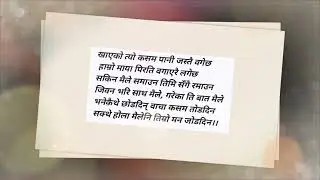 खाएको त्यो कसम पानी जस्तै बगेछ
हाम्रो माया पिरति बगाएरै लगेछ
सकिन मैले समाउन तिमि सँगै रमाउन
जिवन भरि साथ मैले, गरेका ति बात मैले
भनेकैथे छोडदिन् बाचा कसम तोडदिन
सक्थे होला मैलेनि तियो मन जोडदिन।।